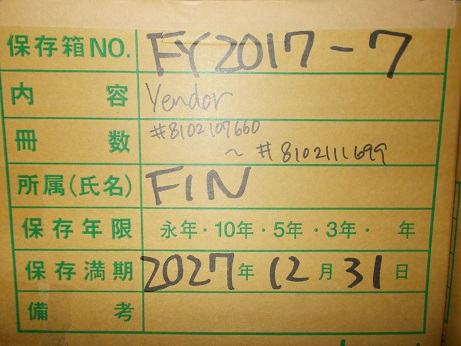 保存箱NO. FY2017-7
内容 Vendor
冊数 #8102109660
~ #8102111699
所属(氏名) FIN
保存年限 永年・10年・5年・3年・ 年
保存満期 2027年12月31日
備考